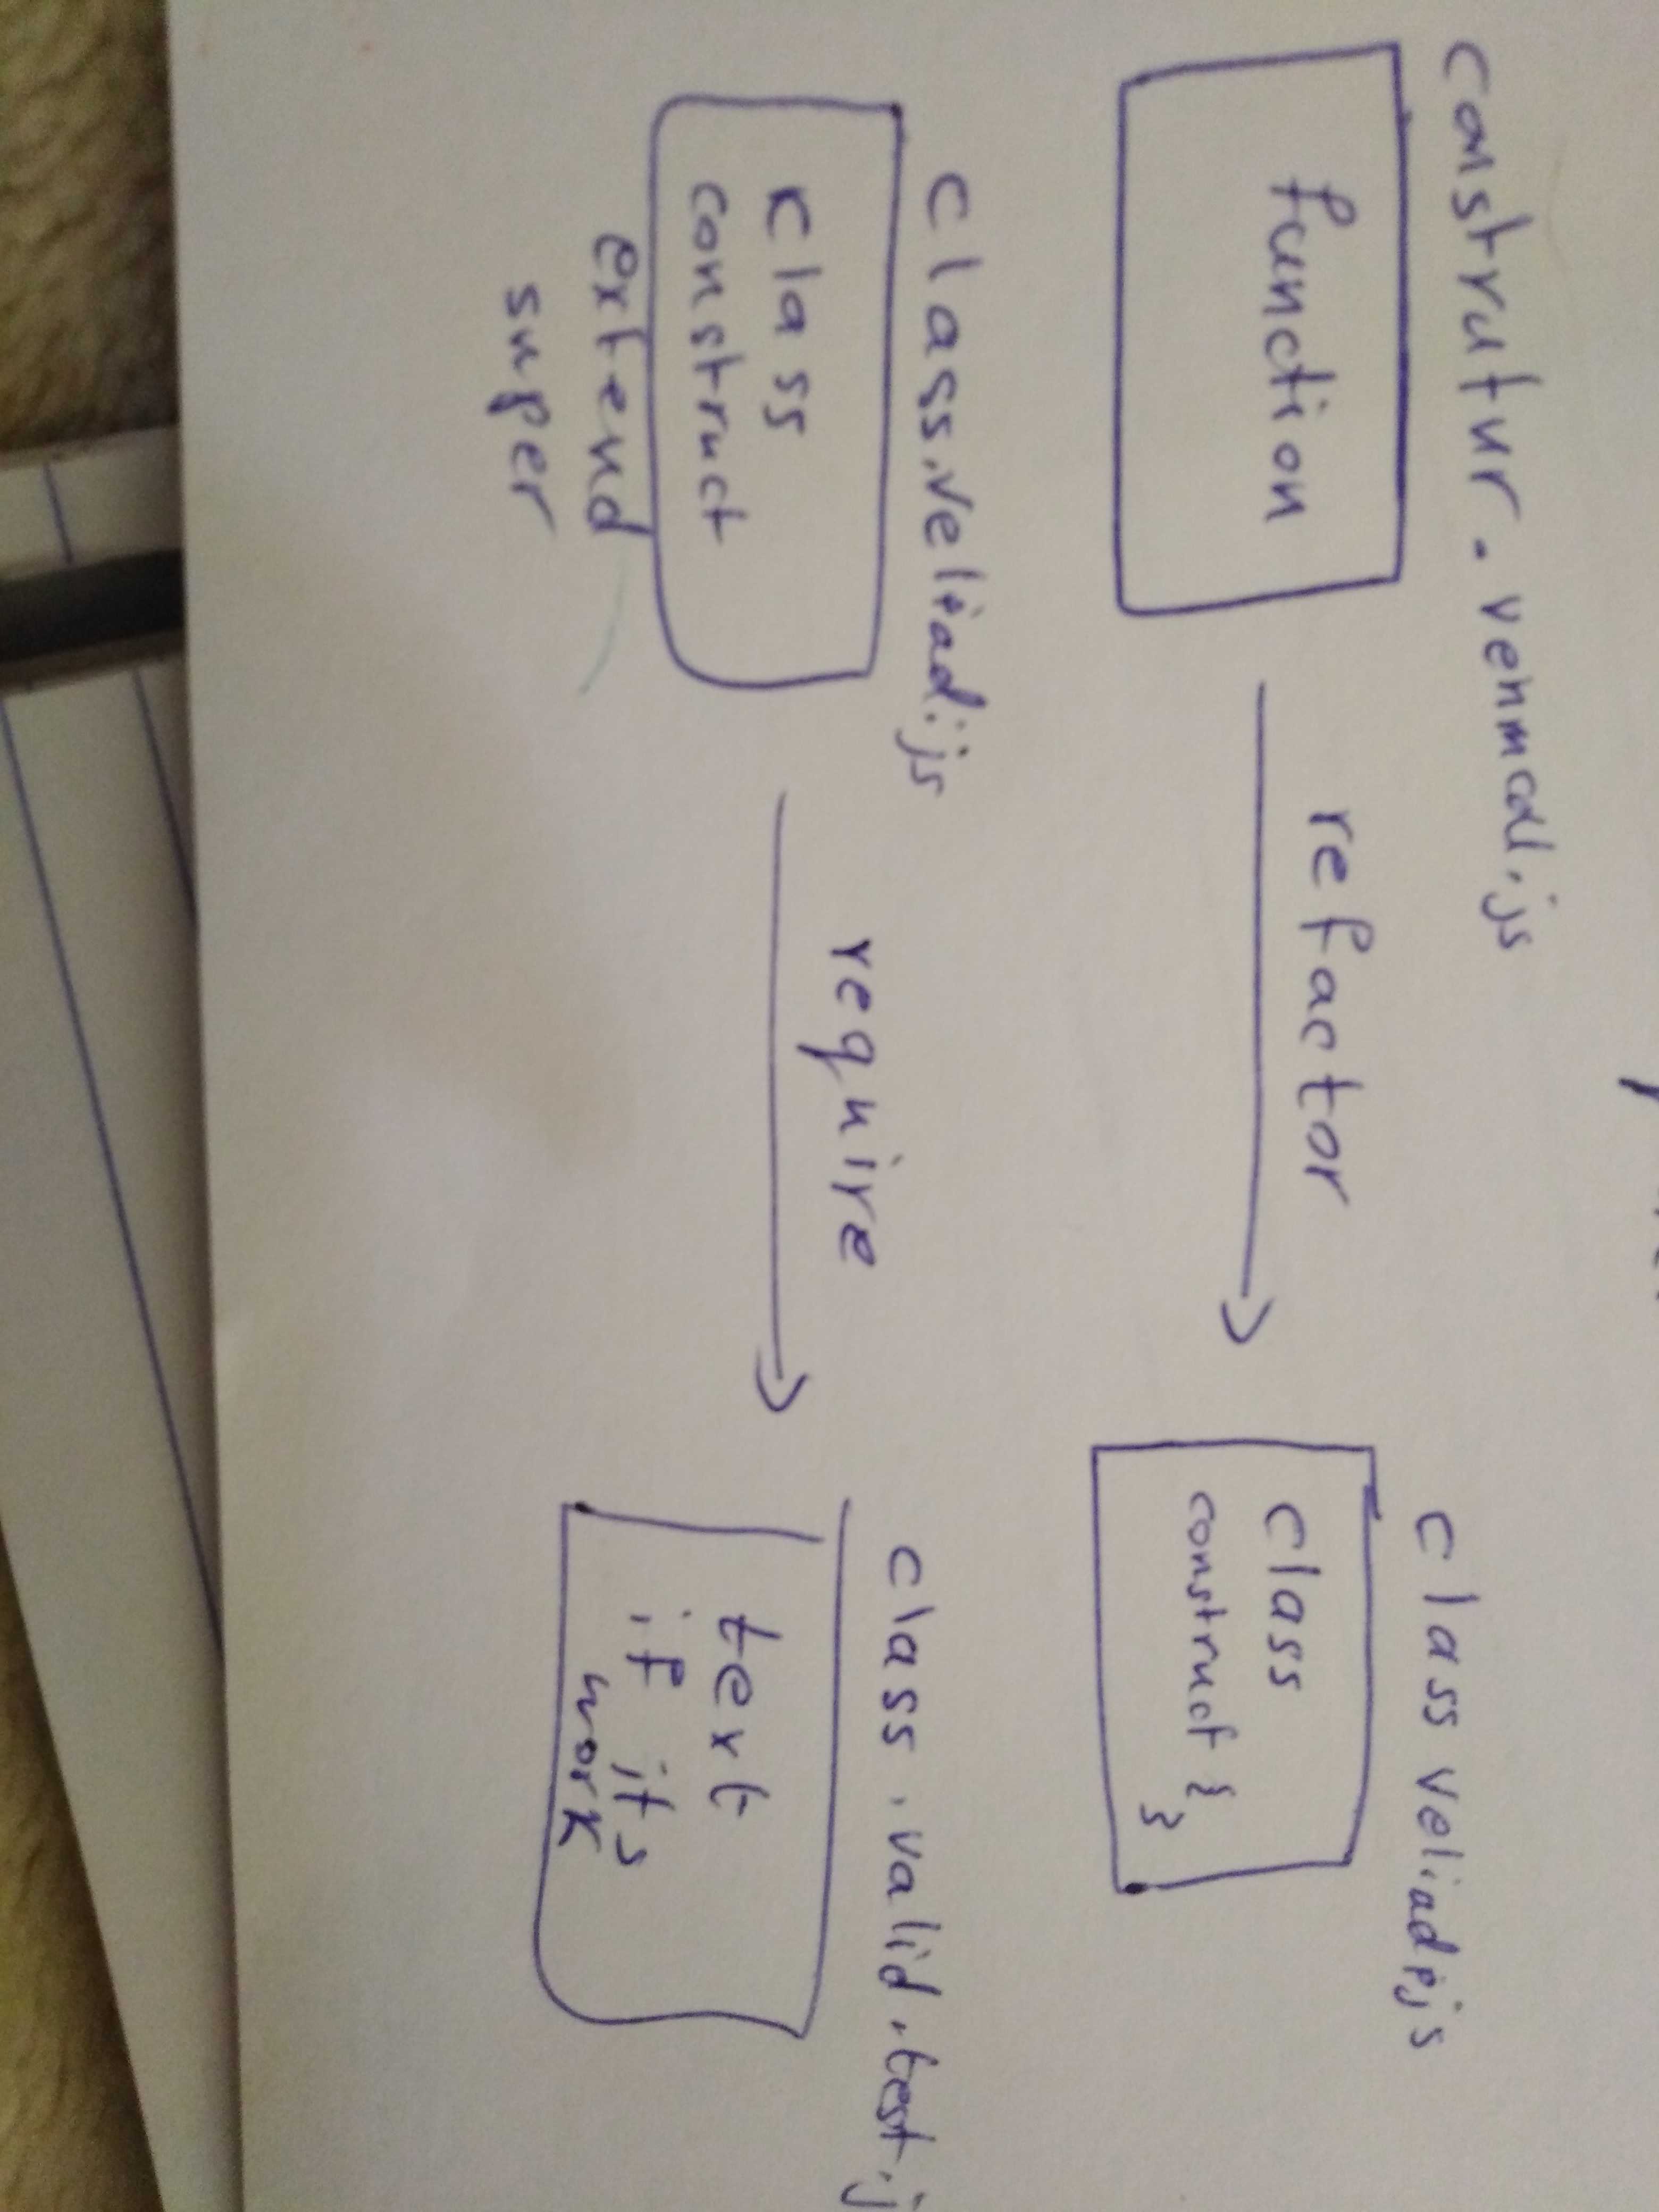 construtur.venmcal.js
function
refactor
class veliadijs
class
construct {
}
class.veliad.js
class
construct
extend
super
require
class.valid.test.j
text
if its
work